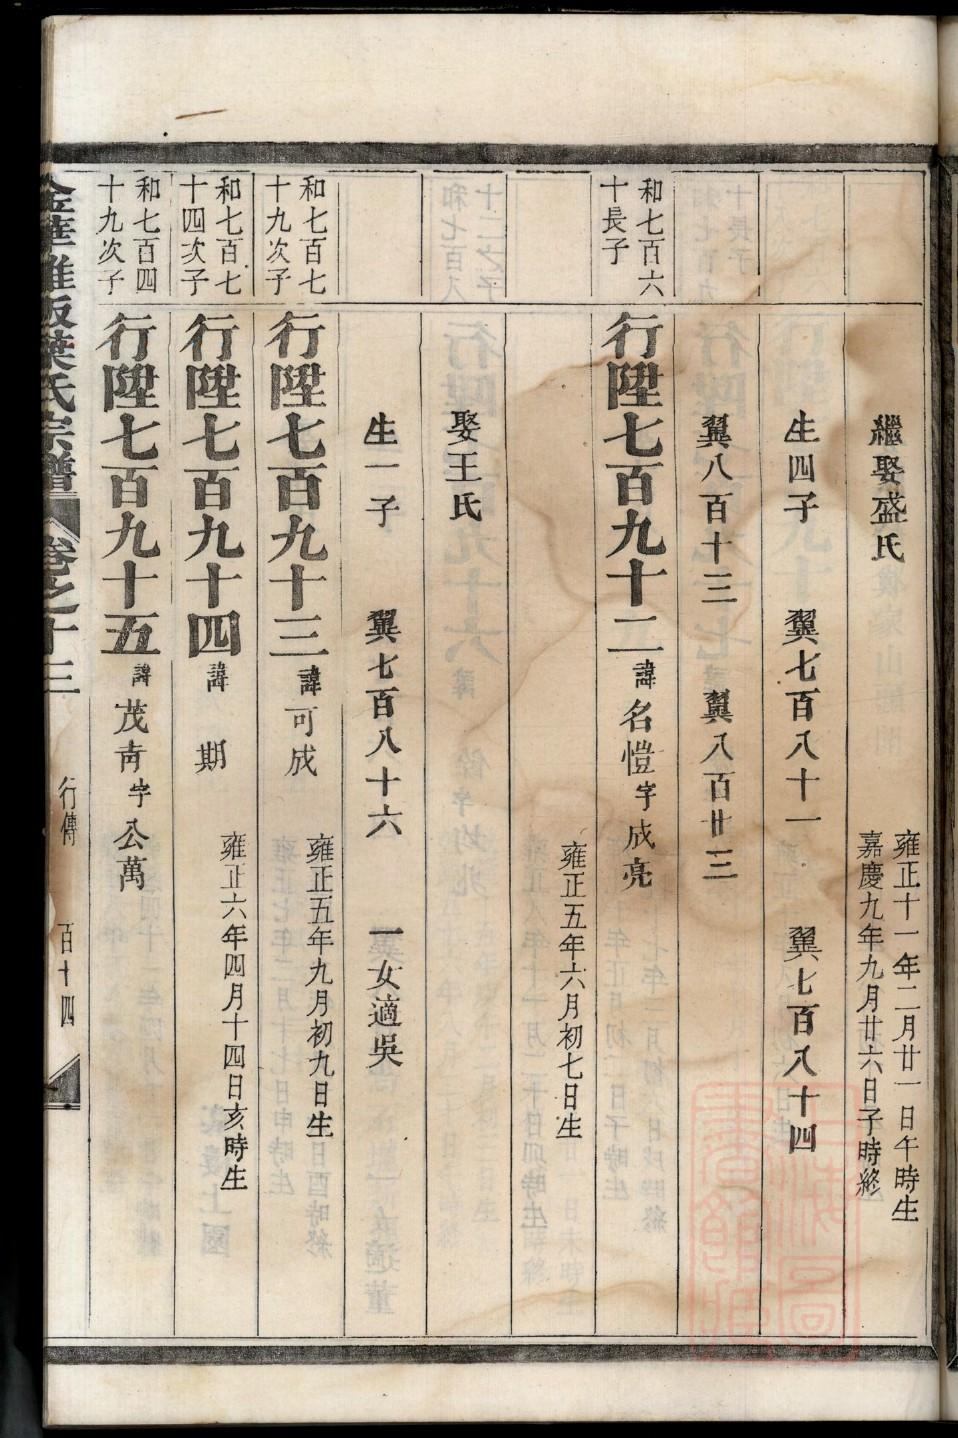 繼娶盛氏
雍正十一年二月廿一日午時生
嘉慶九年九月廿六日子時終
生四子 翼七百八十一 翼七百八十四
翼八百十三 翼八百廿三
和七百六十長子
行陞七百九十二 諱名愷字成亮
雍正五年六月初七日生
娶王氏
生一子 翼七百八十六 一女適吳
和七百七十九次子
行陞七百九十三 諱可成
雍正五年九月初九日生
和七百七十四次子
行陞七百九十四 諱 期
雍正六年四月十四日亥時生
和七百四十九次子
行陞七百九十五 諱茂南字公萬
金華雅畈葉氏宗譜 卷之十三 行傳 百十四